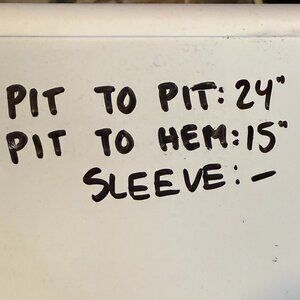 PIT TO PIT: 24"
PIT TO HEM: 15"
SLEEVE: -